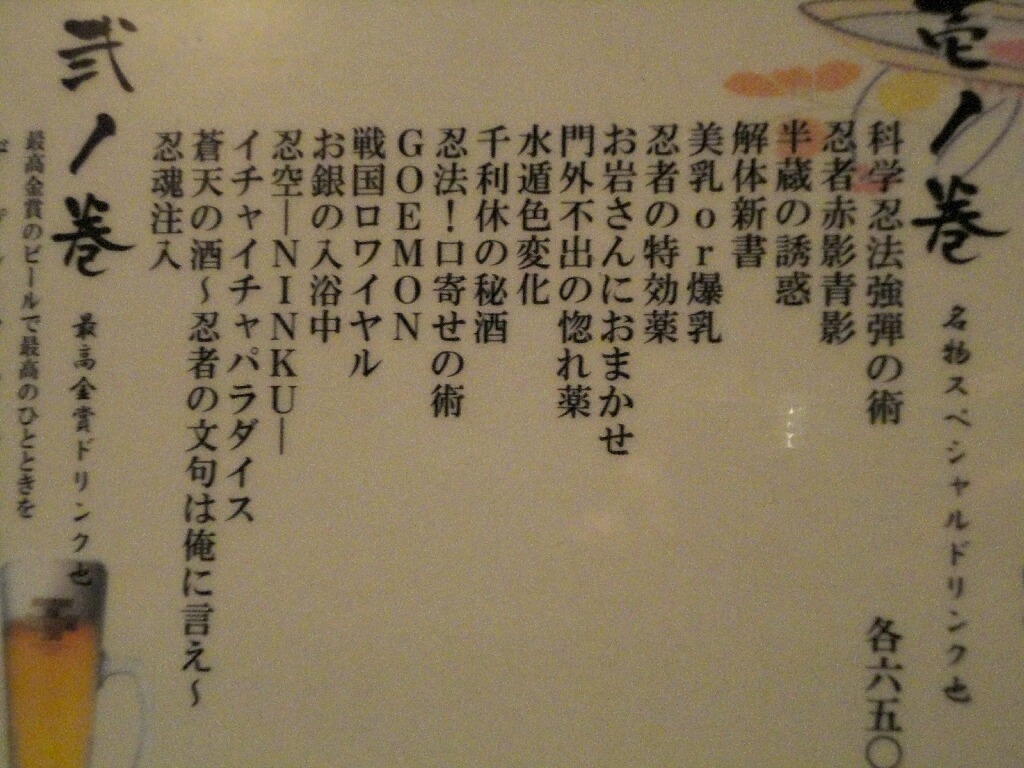 壱ノ巻 名物スペシャルドリンク也
科学忍法強弾の術 各六五〇
忍者赤影青影
半蔵の誘惑
解体新書
美乳or爆乳
忍者の特効薬
お岩さんにおまかせ
門外不出の惚れ薬
水遁色変化
千利休の秘酒
忍法！口寄せの術
GOEMON
戦国ロワイヤル
お銀の入浴中
忍空―NINKU―
イチャイチャパラダイス
蒼天の酒～忍者の文句は俺に言え～
忍魂注入
弐ノ巻 最高金賞ドリンク也
最高金賞のビールで最高のひとときを